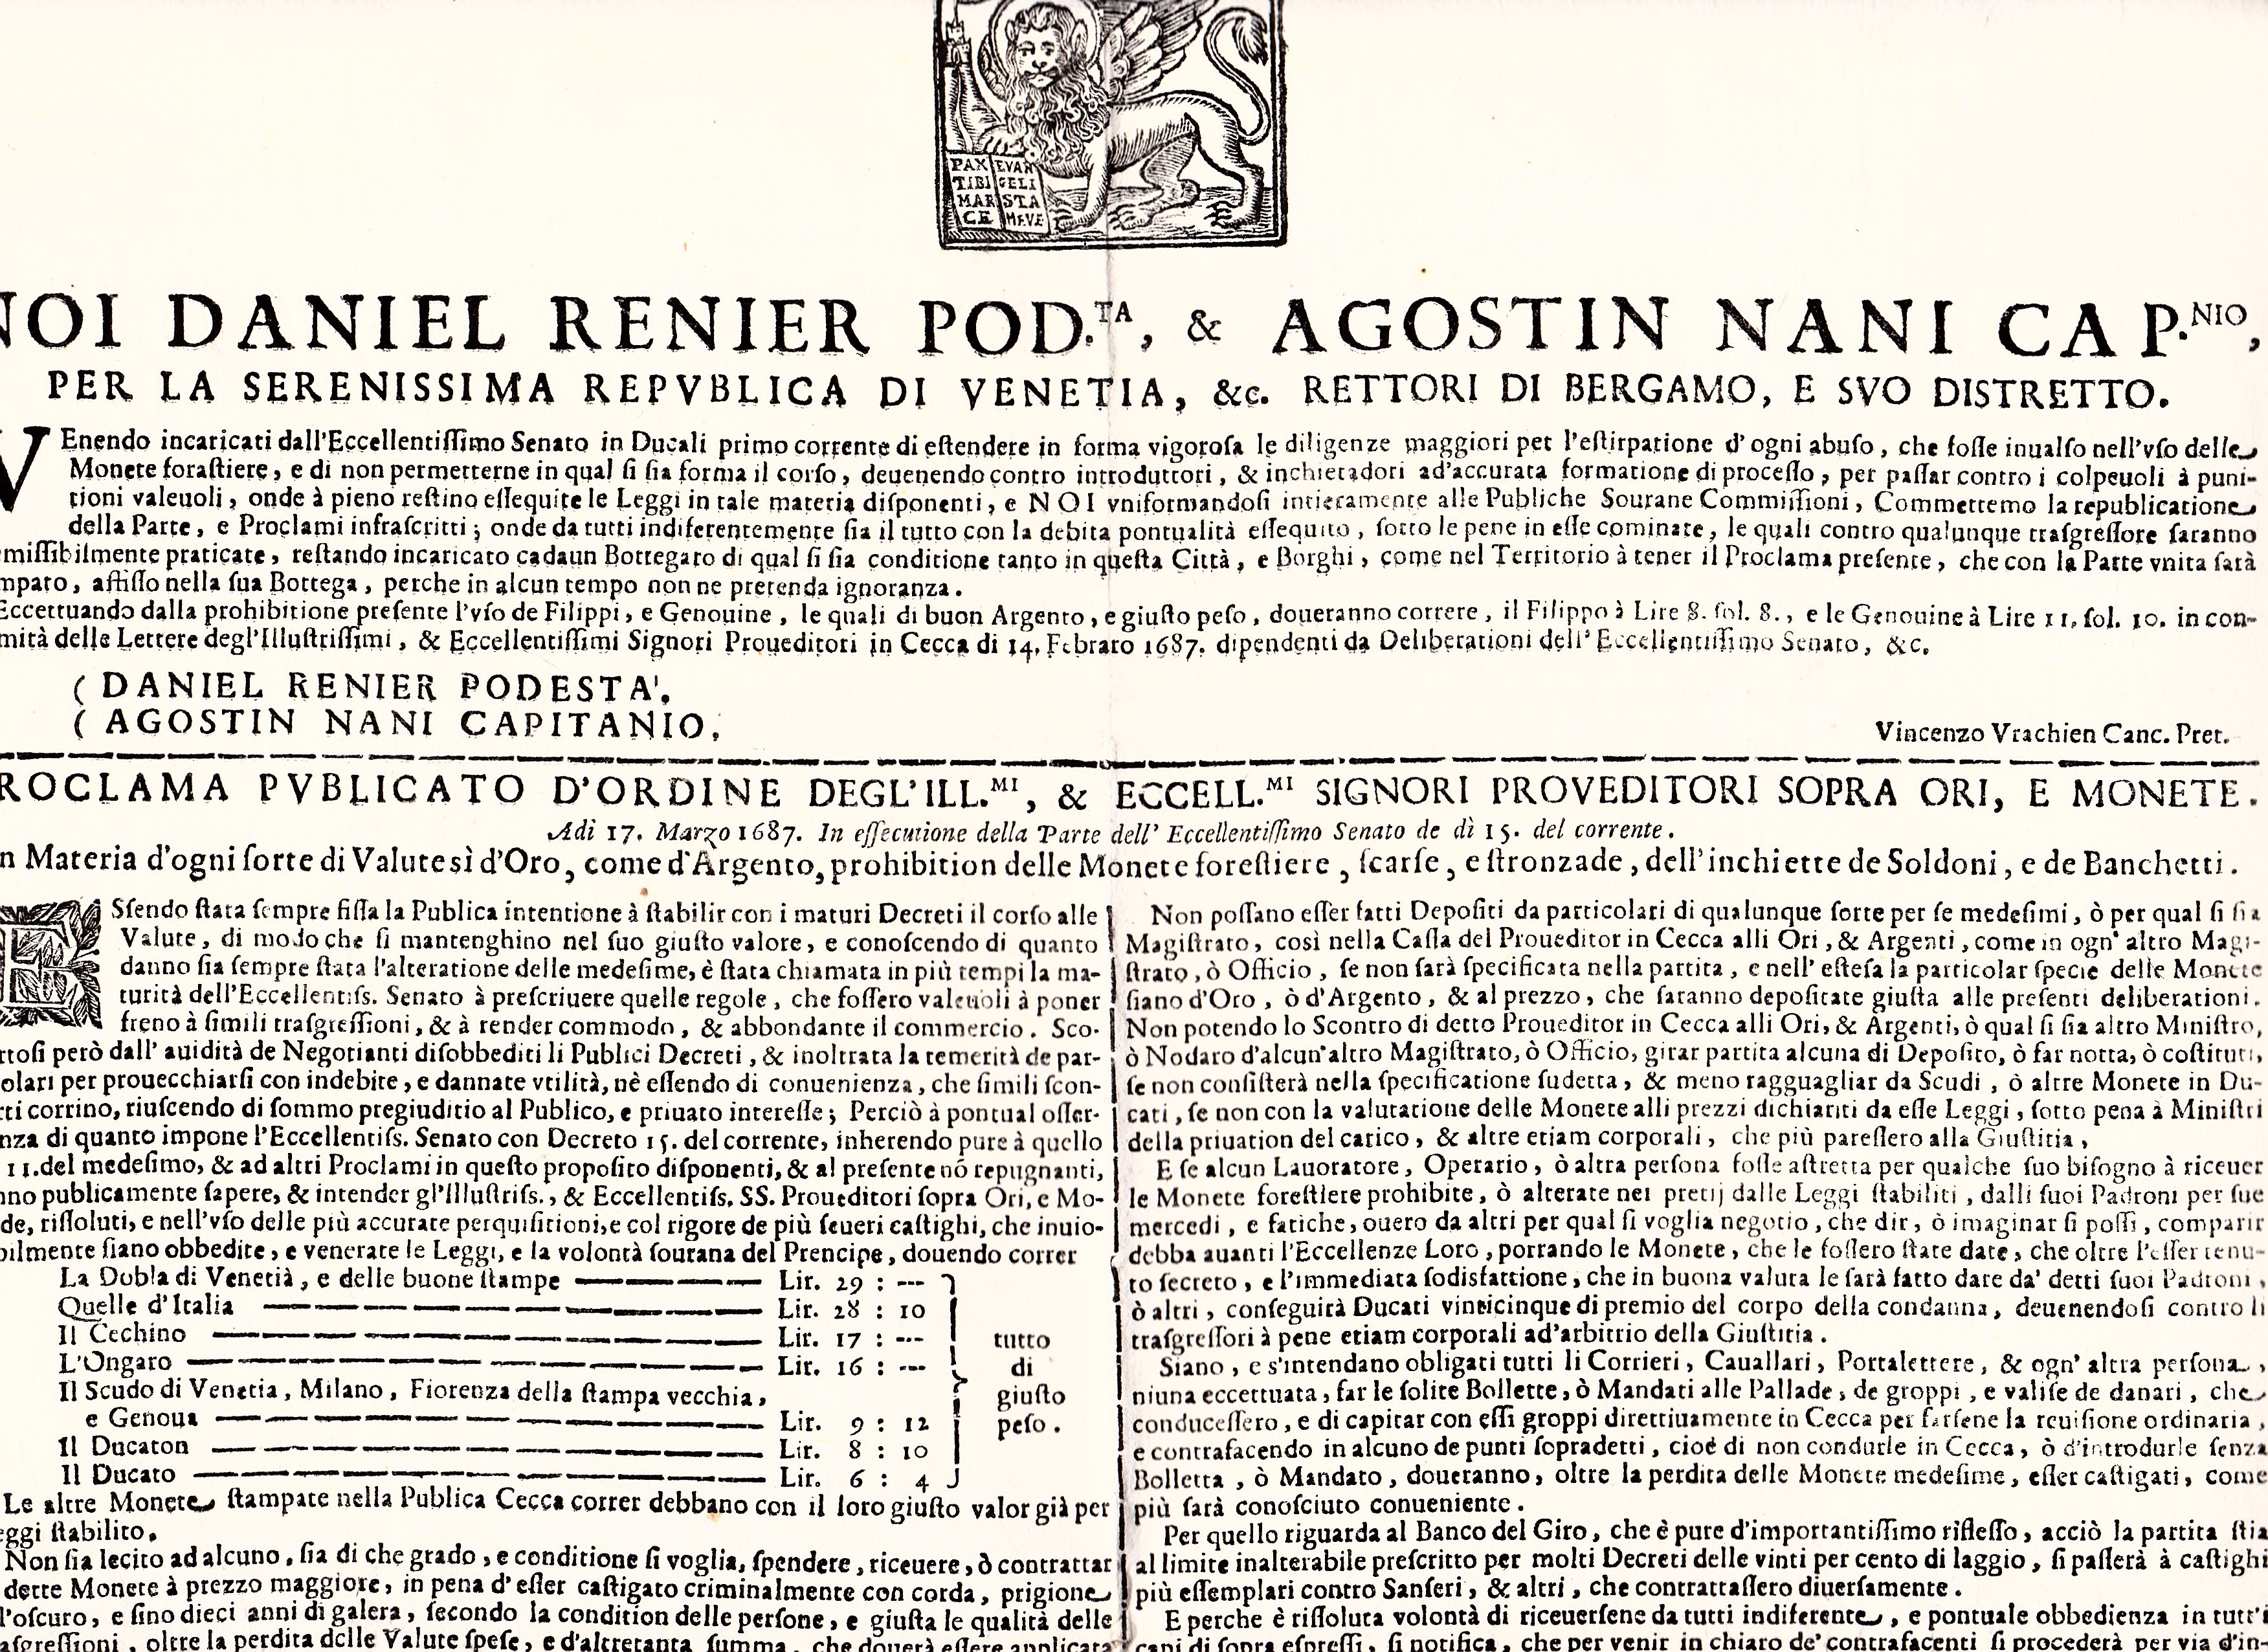 PAX EVAN
TIBI GELI
MAR STA
CE MEVE
NOI DANIEL RENIER POD.TA, & AGOSTIN NANI CAP.NIO,
PER LA SERENISSIMA REPVBLICA DI VENETIA, &c. RETTORI DI BERGAMO, E SVO DISTRETTO.
VEnendo incaricati dall'Eccellentiſſimo Senato in Ducali primo corrente di eſtendere in forma vigoroſa le diligenze maggiori pet l'eſtirpatione d'ogni abuſo, che foſſe inualſo nell'vſo delle
Monete foraſtiere, e di non permetterne in qual ſi ſia forma il corſo, deuenendo contro introduttori, & inchietadori ad'accurata formatione di proceſſo, per paſſar contro i colpeuoli à puni-
tioni valeuoli, onde à pieno reſtino eſſequite le Leggi in tale materia diſponenti, e NOI vniformandoſi intieramente alle Publiche Sourane Commiſſioni, Commettemo la republicatione
della Parte, e Proclami infraſcritti; onde da tutti indiferentemente ſia il tutto con la debita pontualità eſſequito, ſotto le pene in eſſe cominate, le quali contro qualunque traſgreſſore ſaranno
miſſibilmente praticate, reſtando incaricato cadaun Bottegaro di qual ſi ſia conditione tanto in queſta Città, e Borghi, come nel Territorio à tener il Proclama preſente, che con la Parte vnita ſatà
mpato, affiſſo nella ſua Bottega, perche in alcun tempo non ne pretenda ignoranza.
Eccettuando dalla prohibitione preſente l'vſo de Filippi, e Genouine, le quali di buon Argento, e giuſto peſo, doueranno correre, il Filippo à Lire 8. ſol. 8., e le Genouine à Lire 11. ſol. 10. in con-
mità delle Lettere degl'Illuſtriſſimi, & Eccellentiſſimi Signori Proueditori in Cecca di 14. Febraro 1687. dipendenti da Deliberationi dell'Eccellentiſſimo Senato, &c.
( DANIEL RENIER PODESTA'.
( AGOSTIN NANI CAPITANIO.
Vincenzo Vrachien Canc. Pret.
ROCLAMA PVBLICATO D'ORDINE DEGL'ILL.MI, & ECCELL.MI SIGNORI PROVEDITORI SOPRA ORI, E MONETE.
Adì 17. Marzo 1687. In eſſecutione della Parte dell' Eccellentiſſimo Senato de dì 15. del corrente.
n Materia d'ogni ſorte di Valute sì d'Oro, come d'Argento, prohibition delle Monete foreſtiere, ſcarſe, e ſtronzade, dell'inchiette de Soldoni, e de Banchetti.
ESſendo ſtata ſempre fiſſa la Publica intentione à ſtabilir con i maturi Decreti il corſo alle
Valute, di modo che ſi mantenghino nel ſuo giuſto valore, e conoſcendo di quanto
danno ſia ſempre ſtata l'alteratione delle medeſime, è ſtata chiamata in più tempi la ma-
turità dell'Eccellentiſs. Senato à preſcriuere quelle regole, che foſſero valeuoli à poner
freno à ſimili traſgreſſioni, & à render commodo, & abbondante il commercio. Sco-
rtoſi però dall' auidità de Negotianti diſobbediti li Publici Decreti, & inoltrata la temerità de par-
olari per prouecchiarſi con indebite, e dannate vtilità, nè eſſendo di conuenienza, che ſimili ſcon-
rti corrino, riuſcendo di ſommo pregiuditio al Publico, e priuato intereſſe; Perciò à pontual oſſer-
nza di quanto impone l'Eccellentiſs. Senato con Decreto 15. del corrente, inherendo pure à quello
11. del medeſimo, & ad altri Proclami in queſto propoſito diſponenti, & al preſente nō repugnanti,
nno publicamente ſapere, & intender gl'Illuſtriſs., & Eccellentiſs. SS. Proueditori ſopra Ori, e Mo-
de, riſſoluti, e nell'vſo delle più accurate perquiſitioni, e col rigore de più ſeueri caſtighi, che inuio-
bilmente ſiano obbedite, e venerate le Leggi, e la volontà ſourana del Prencipe, douendo correr
La Dobla di Venetià, e delle buone ſtampe — Lir. 29 : ---
Quelle d'Italia — Lir. 28 : 10
Il Cechino — Lir. 17 : --- tutto
L'Ongaro — Lir. 16 : --- di
Il Scudo di Venetia, Milano, Fiorenza della ſtampa vecchia, giuſto
e Genoua — Lir. 9 : 12 peſo.
Il Ducaton — Lir. 8 : 10
Il Ducato — Lir. 6 : 4
Le altre Monete ſtampate nella Publica Cecca correr debbano con il loro giuſto valor già per
eggi ſtabilito.
Non ſia lecito ad alcuno, ſia di che grado, e conditione ſi voglia, ſpendere, riceuere, ò contrattar
dette Monete à prezzo maggiore, in pena d'eſſer caſtigato criminalmente con corda, prigione
l'oſcuro, e ſino dieci anni di galera, ſecondo la condition delle perſone, e giuſta le qualità delle
aſgreſſioni, oltre la perdita delle Valute ſpeſe, e d'altretanta ſumma, che douerà eſſere applicata
Non poſſano eſſer fatti Depoſiti da particolari di qualunque ſorte per ſe medeſimi, ò per qual ſi ſia
Magiſtrato, così nella Caſſa del Proueditor in Cecca alli Ori, & Argenti, come in ogn' altro Magi-
ſtrato, ò Officio, ſe non ſarà ſpecificata nella partita, e nell' eſteſa la particolar ſpecie delle Monete
ſiano d'Oro, ò d'Argento, & al prezzo, che ſaranno depoſitate giuſta alle preſenti deliberationi.
Non potendo lo Scontro di detto Proueditor in Cecca alli Ori, & Argenti, ò qual ſi ſia altro Miniſtro,
ò Nodaro d'alcun'altro Magiſtrato, ò Officio, girar partita alcuna di Depoſito, ò far notta, ò coſtituti,
ſe non conſiſterà nella ſpecificatione ſudetta, & meno ragguagliar da Scudi, ò altre Monete in Du-
cati, ſe non con la valutatione delle Monete alli prezzi dichiariti da eſſe Leggi, ſotto pena à Miniſtri
della priuation del carico, & altre etiam corporali, che più pareſſero alla Giuſtitia,
E ſe alcun Lauoratore, Operario, ò altra perſona foſſe aſtretta per qualche ſuo biſogno à riceuer
le Monete foreſtiere prohibite, ò alterate nei pretij dalle Leggi ſtabiliti, dalli ſuoi Padroni per ſue
mercedi, e fatiche, ouero da altri per qual ſi voglia negotio, che dir, ò imaginar ſi poſſi, comparir
debba auanti l'Eccellenze Loro, portando le Monete, che le foſſero ſtate date, che oltre l'eſſer tenu-
to ſecreto, e l'immediata ſodisfattione, che in buona valuta le ſarà fatto dare da' detti ſuoi Padroni,
ò altri, conſeguirà Ducati vinticinque di premio del corpo della condanna, deuenendoſi contro li
traſgreſſori à pene etiam corporali ad'arbitrio della Giuſtitia.
Siano, e s'intendano obligati tutti li Corrieri, Cauallari, Portalettere, & ogn' altra perſona,
niuna eccettuata, far le ſolite Bollette, ò Mandati alle Pallade, de groppi, e valiſe de danari, che
conduceſſero, e di capitar con eſſi groppi direttiuamente in Cecca per farſene la reuiſione ordinaria,
e contrafacendo in alcuno de punti ſopradetti, cioè di non condurle in Cecca, ò d'introdurle ſenza
Bolletta, ò Mandato, doueranno, oltre la perdita delle Monete medeſime, eſſer caſtigati, come
più ſarà conoſciuto conueniente.
Per quello riguarda al Banco del Giro, che è pure d'importantiſſimo rifleſſo, acciò la partita ſtia
al limite inalterabile preſcritto per molti Decreti delle vinti per cento di laggio, ſi paſſerà à caſtighi
più eſſemplari contro Sanſeri, & altri, che contrattaſſero diuerſamente.
E perche è riſſoluta volontà di riceuerſene da tutti indiferente, e pontuale obbedienza in tutt'i
capi di ſopra eſpreſſi, ſi notifica, che per venir in chiaro de' contrafacenti ſi procederà per via d'in-